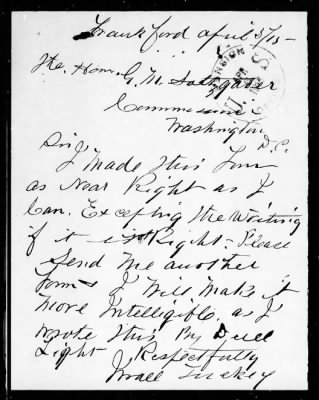 Frankford April 5/15-
The. Hom. G. M. Saltzgaber
Commissioner
Washington
D.C.
Sir
I Made this Form
as Near Right as I
Can. Excepting the Writing
if it is Right - Please
Send Me another
Form & I Will Make it
More Intelligible. as I
Wrote this By Dull
Light Respectfully
Tuckey
PENSION
U.S.